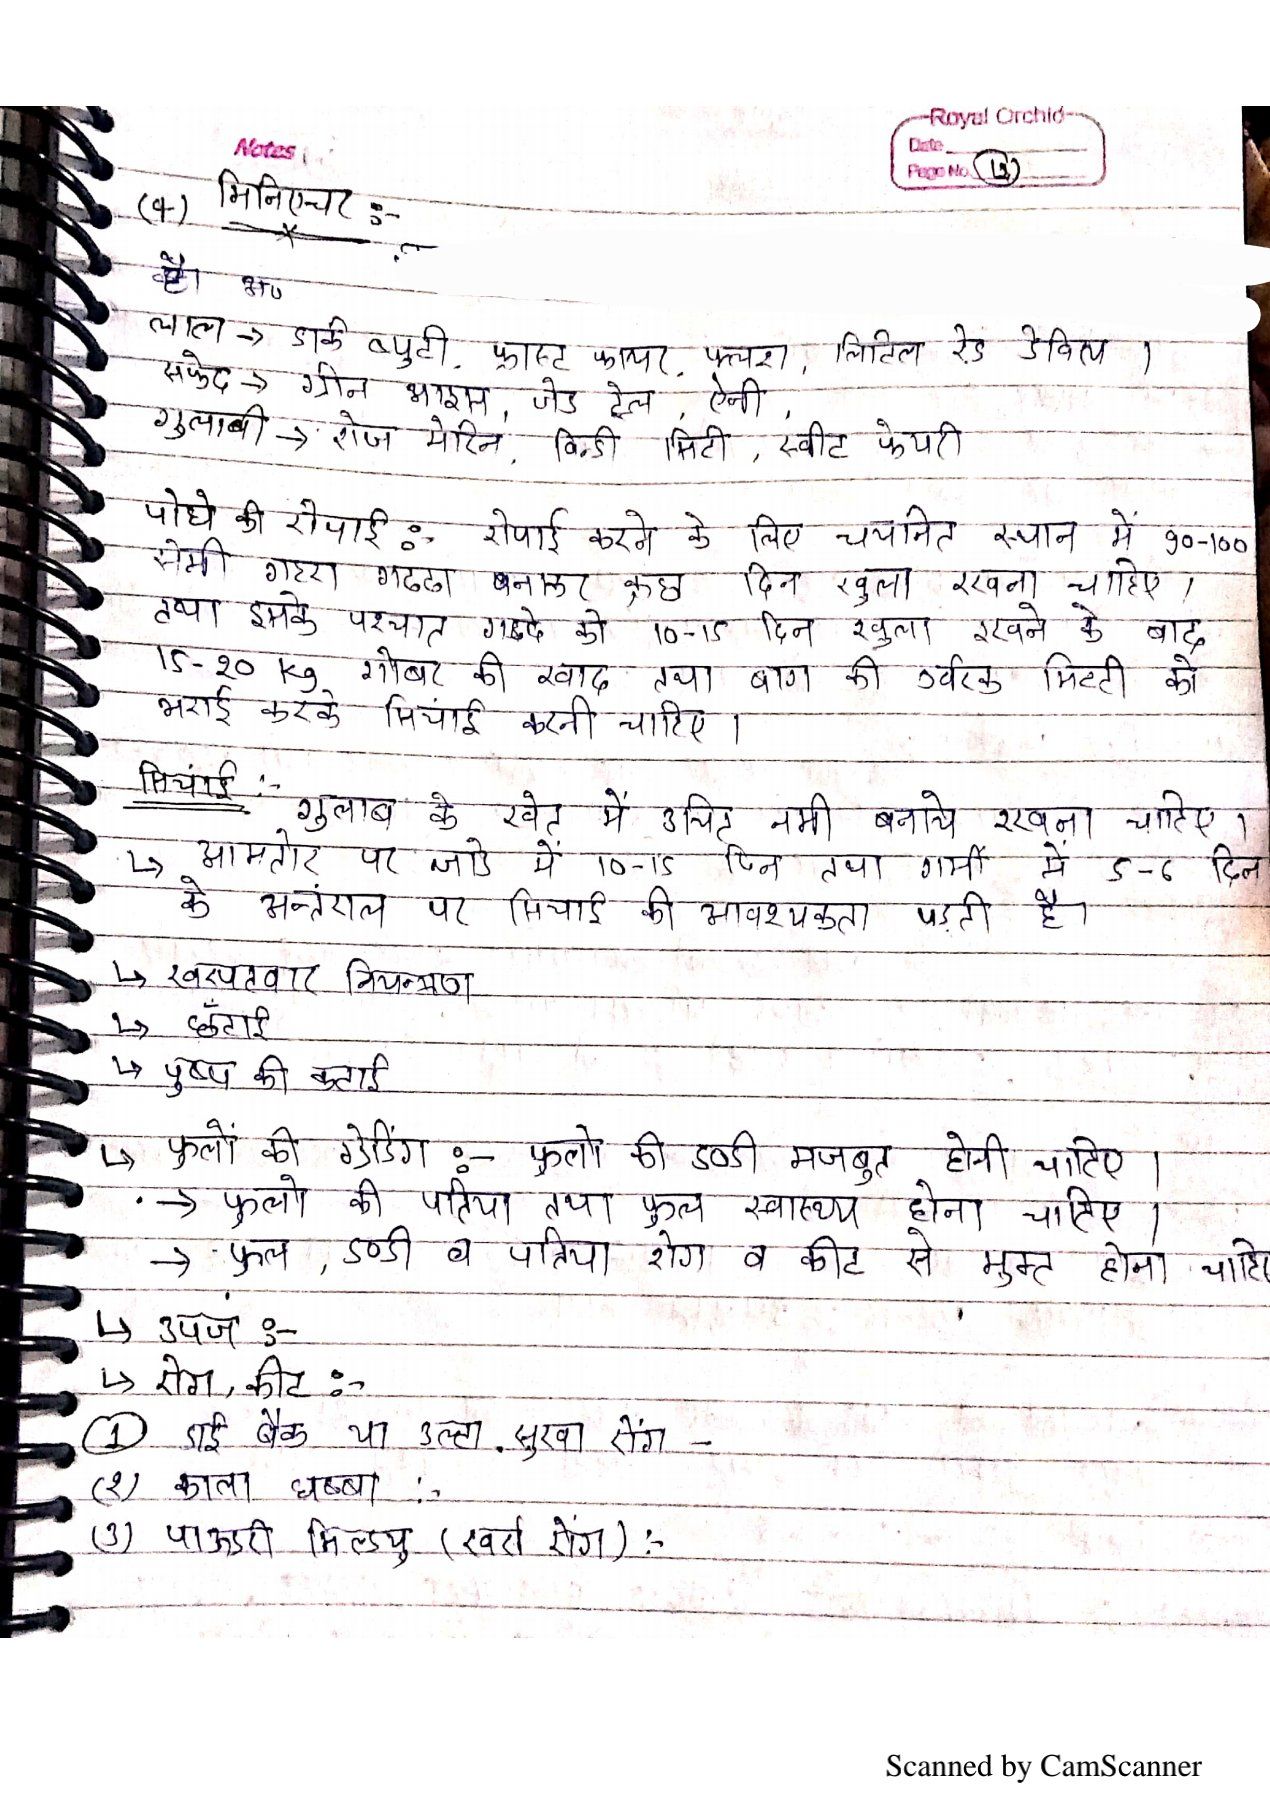 Royal Orchid
Notes
Date
Page No. 12
(4) मिनिएचर :-
है।
लाल → डार्क ब्युटी, फ्रास्ट फायर, फ्लश, लिटिल रेड डेविल ।
सफेद → ग्रीन आइस, जेड ट्रेल, ऐनी,
गुलाबी → रोज मेरिन, विन्डी सिटी, स्वीट फेयरी
पोधे की रोपाई :- रोपाई करने के लिए चयनित स्थान में 90-100
सेमी गहरा गढढा बनाकर कुछ दिन खुला रखना चाहिए ।
तथा इसके पश्चात गढढे को 10-15 दिन खुला रखने के बाद
15-20 kg गोबर की खाद तथा बाग की उर्वरक मिटटी को
भराई करके सिचांई करनी चाहिए ।
सिचांई :-
गुलाब के खेत में उचित नमी बनाये रखना चाहिए ।
↳ आमतोर पर जाडे में 10-15 दिन तथा गर्मी में 5-6 दिन
के अन्तंराल पर सिचाई की आवश्यकता पड़ती है।
↳ खरपतवार नियन्त्रण
↳ छँटाई
↳ पुष्प की कटाई
↳ फुलों की ग्रेडिंग :- फुलो की डण्डी मजबुत होनी चाहिए ।
→ फुलो की पत्तिया तथा फुल स्वास्थ्य होना चाहिए ।
→ फुल, डण्डी व पत्तिया रोग व कीट से मुक्त होना चाहि
↳ उपज :-
↳ रोग, कीट :-
① डाई बैक या उल्टा सुखा रोंग -
(2) काला धब्बा :-
(3) पाऊडरी मिल्डयु (खर्रा रोंग) :-
Scanned by CamScanner